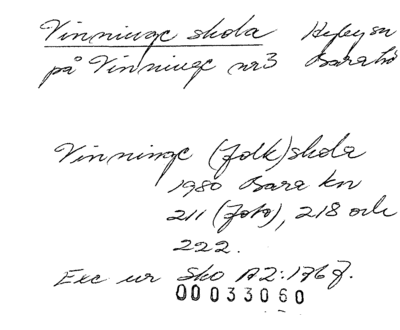 Vinninge skola Hyby sn
på Vinninge nr3 Bara hd
Vinninge (folk)skola
1980 Bara kn
211 (foto), 218 och
222.
Exc ur Sko A2:176 f.
00033060